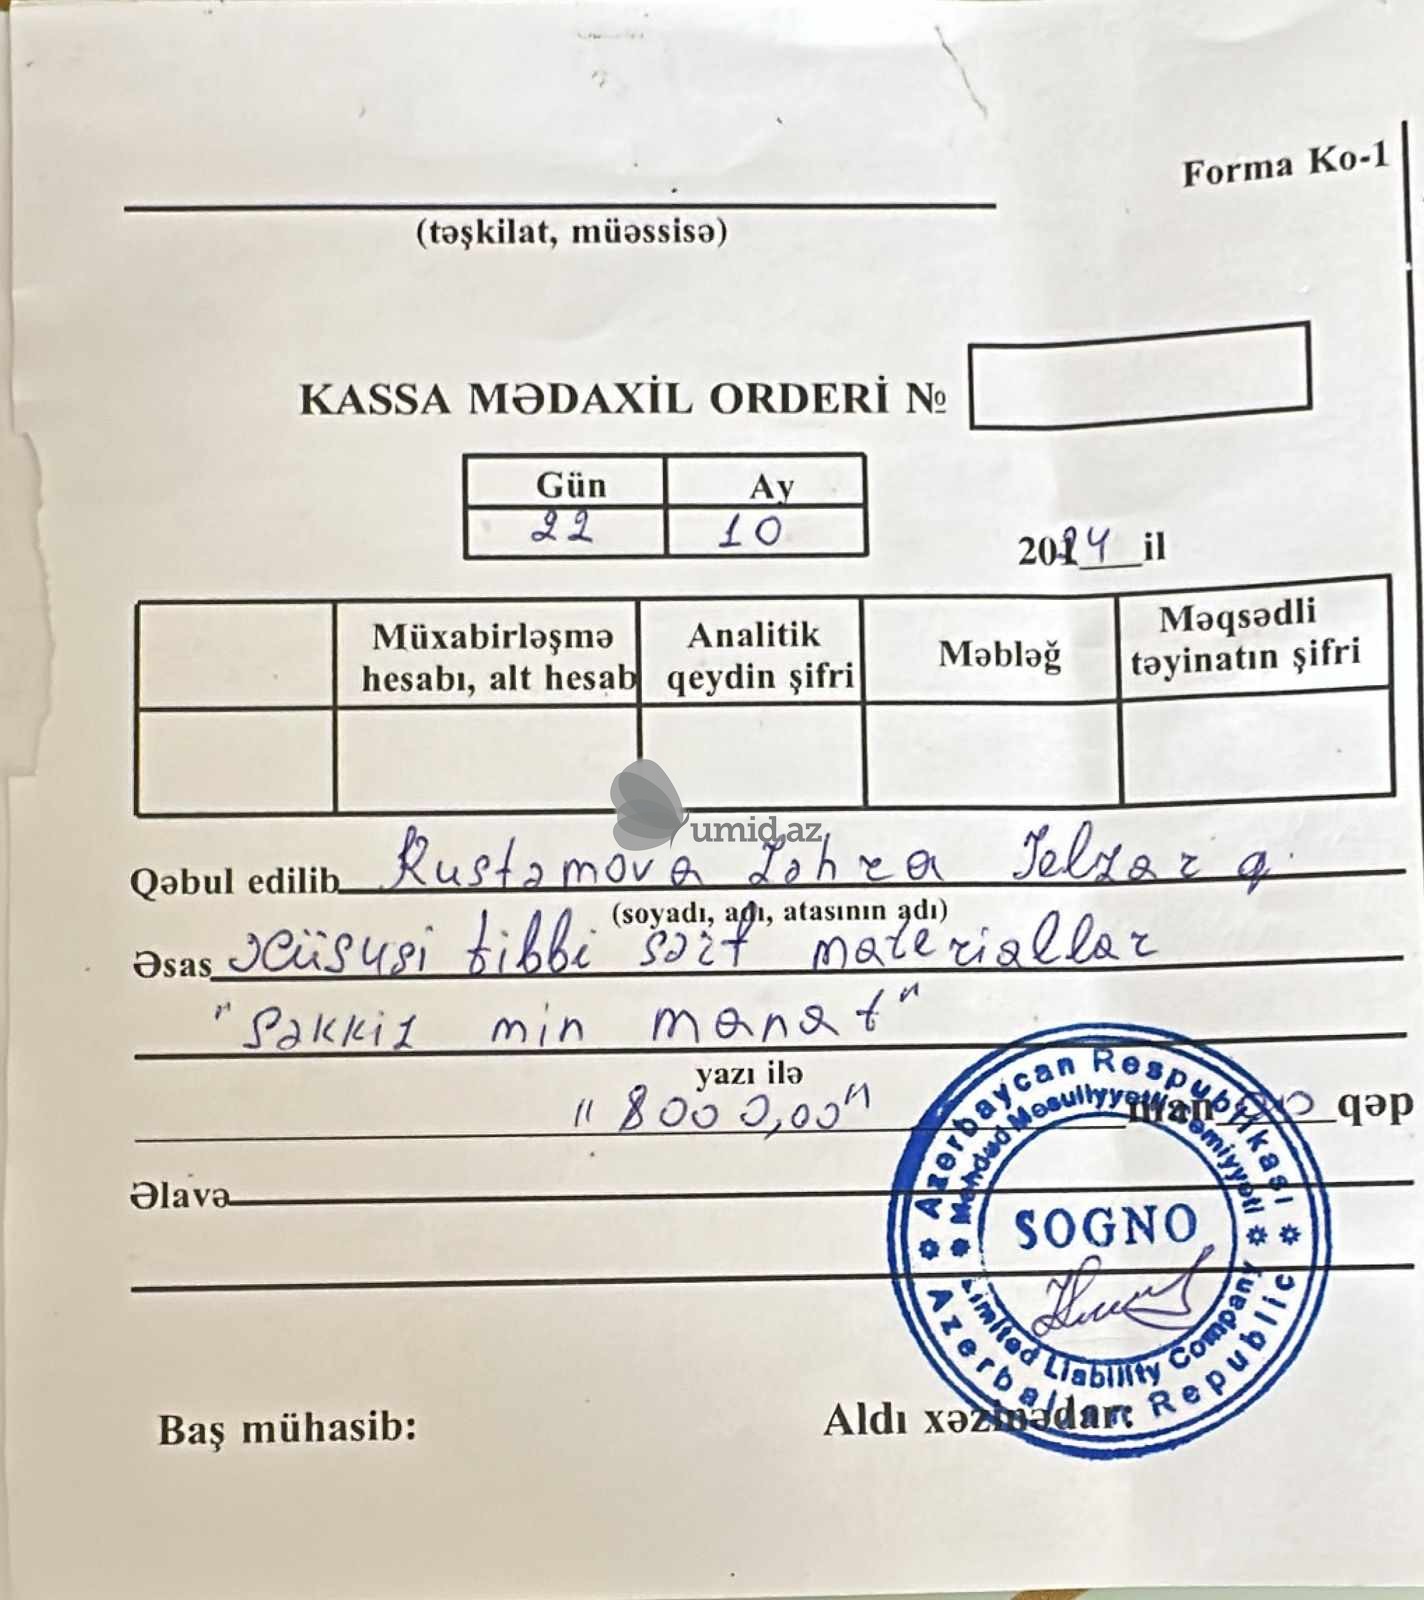 Forma Ko-1
(təşkilat, müəssisə)
KASSA MƏDAXİL ORDERİ №
Gün Ay
22 10
2024 il
Müxabirləşmə hesabı, alt hesab
Analitik qeydin şifri
Məbləğ
Məqsədli təyinatın şifri
umid.az
Qəbul edilib Rustəmova Zəhra q.
(soyadı, adı, atasının adı)
Əsas Xüsusi tibbi sərf materiallar
"Səkkiz min manat"
yazı ilə
"8000,00" man 00 qəp
Əlavə
Azərbaycan Respublikası
Məhdud Məsuliyyətli Cəmiyyəti
SOGNO
Limited Liability Company
Azerbaijan Republic
Baş mühasib:
Aldı xəzinədar: